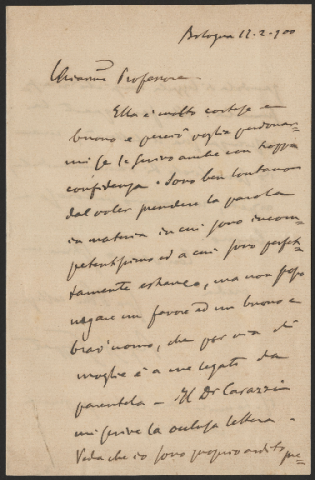 Bologna 12.2.900
Chiarmo Professore.
Ella è molto cortese e
buono e perciò voglia perdonar=
mi se le scrivo anche con troppa
confidenza. Sono ben lontano
dal voler prendere la parola
in materia in cui sono incom=
petentissimo ed a cui sono perfet=
tamente estraneo, ma non posso
negare un favore ad un buono e
brav'uomo, che per via di
moglie è a me legato da
parentela - Il Dr Carazzi
mi scrive la acclusa lettera.
Veda che io sono proprio ardito